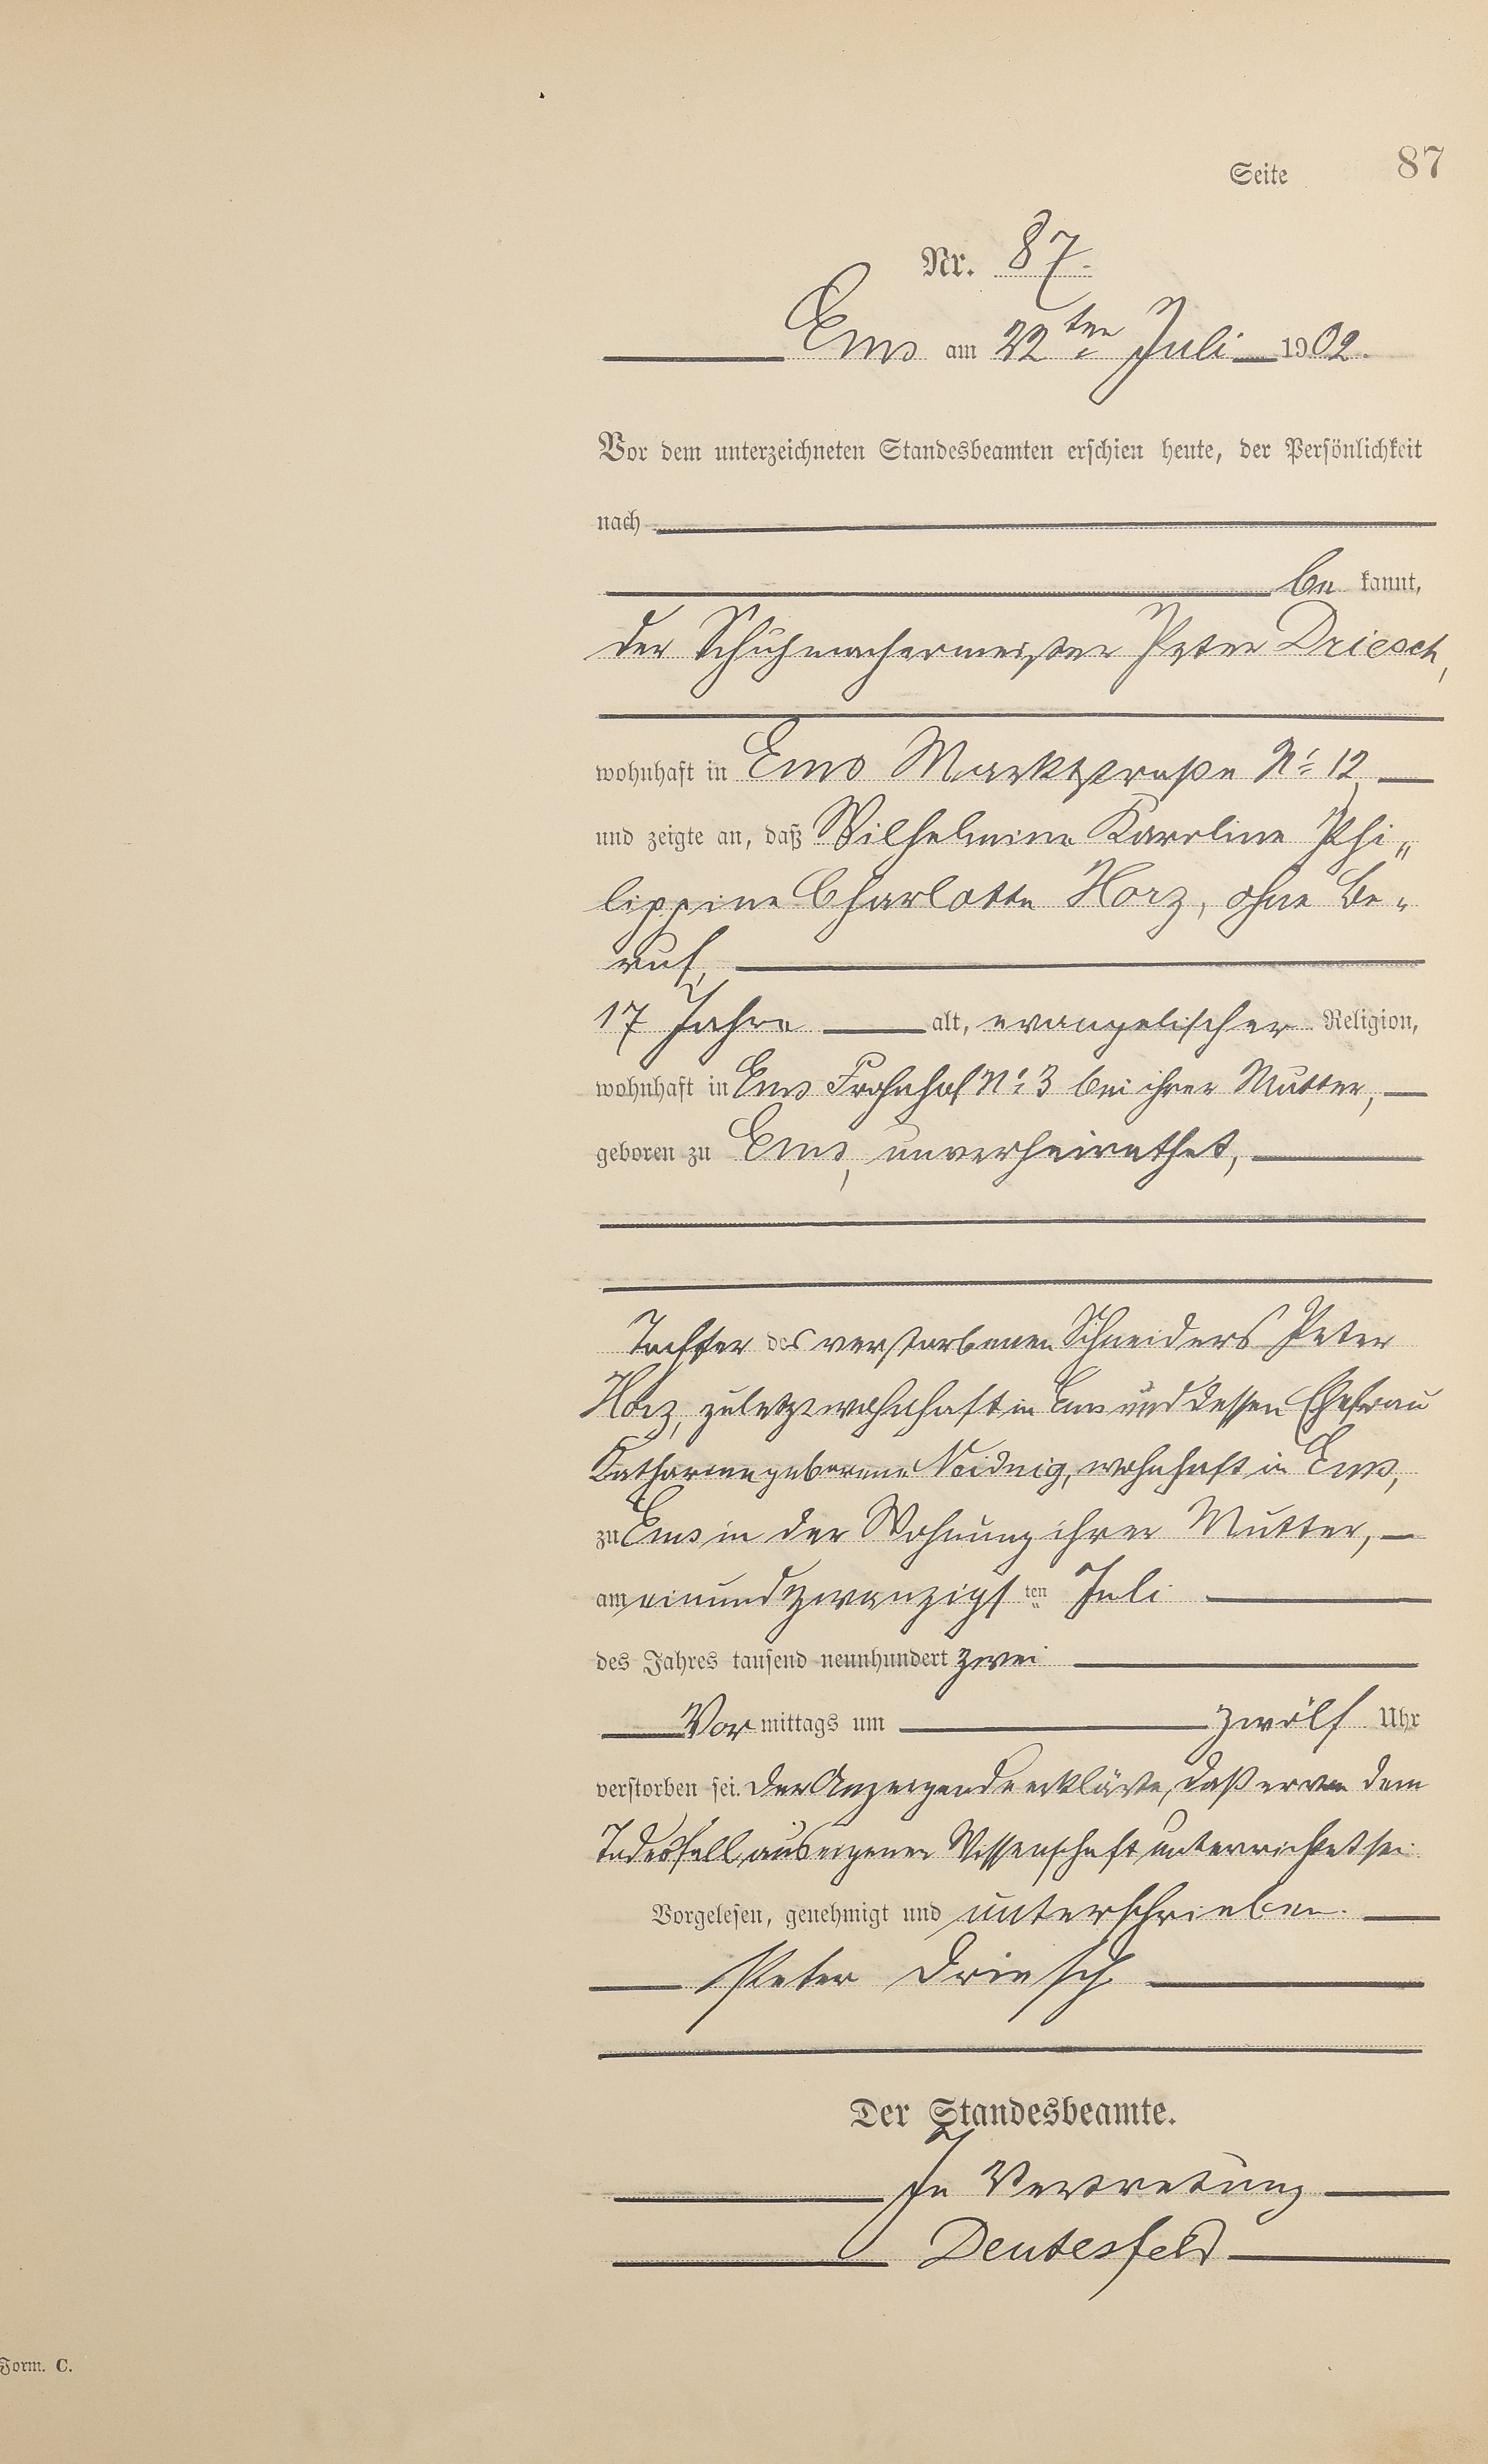 Seite 87
Nr. 87.
Ems am 22ten Juli 1902.
Vor dem unterzeichneten Standesbeamten erschien heute, der Persönlichkeit
nach
be kannt,
der Schuhmachermeister Peter Driesch,
wohnhaft in Ems Marktstraße No 12,
und zeigte an, daß Wilhelmine Karoline Phi„
lippine Charlotte Horz, ohne Be„
ruf,
17 Jahre alt, evangelischer Religion,
wohnhaft in Ems Frohnhof No 3 bei ihrer Mutter,
geboren zu Ems, unverheirathet,
Tochter des verstorbenen Schneiders Peter
Horz, zuletzt wohnhaft in Ems und dessen Ehefrau
Katharine geborene wohnhaft in Ems,
zu Ems in der Wohnung ihrer Mutter,
am einundzwanzigsten Juli
des Jahres tausend neunhundert zwei
Vor mittags um zwölf Uhr
verstorben sei. Der Anzeigende erklärte, daß er von dem
Todesfall aus eigener Wissenschaft unterrichtet sei.
Vorgelesen, genehmigt und unterschrieben.
Peter Driesch
Der Standesbeamte.
In Vertretung
Deutesfeld
Form. C.